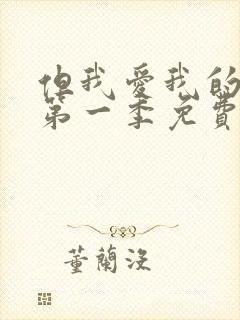 但我愛我的
第一季免費
董蘭溪